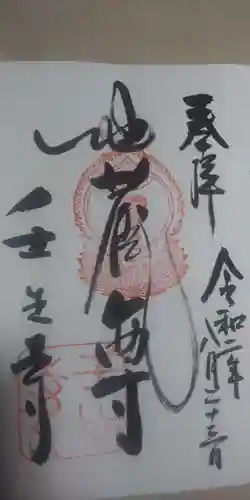 奉拝
令和二年
八月二十三日
地蔵尊
壬生寺